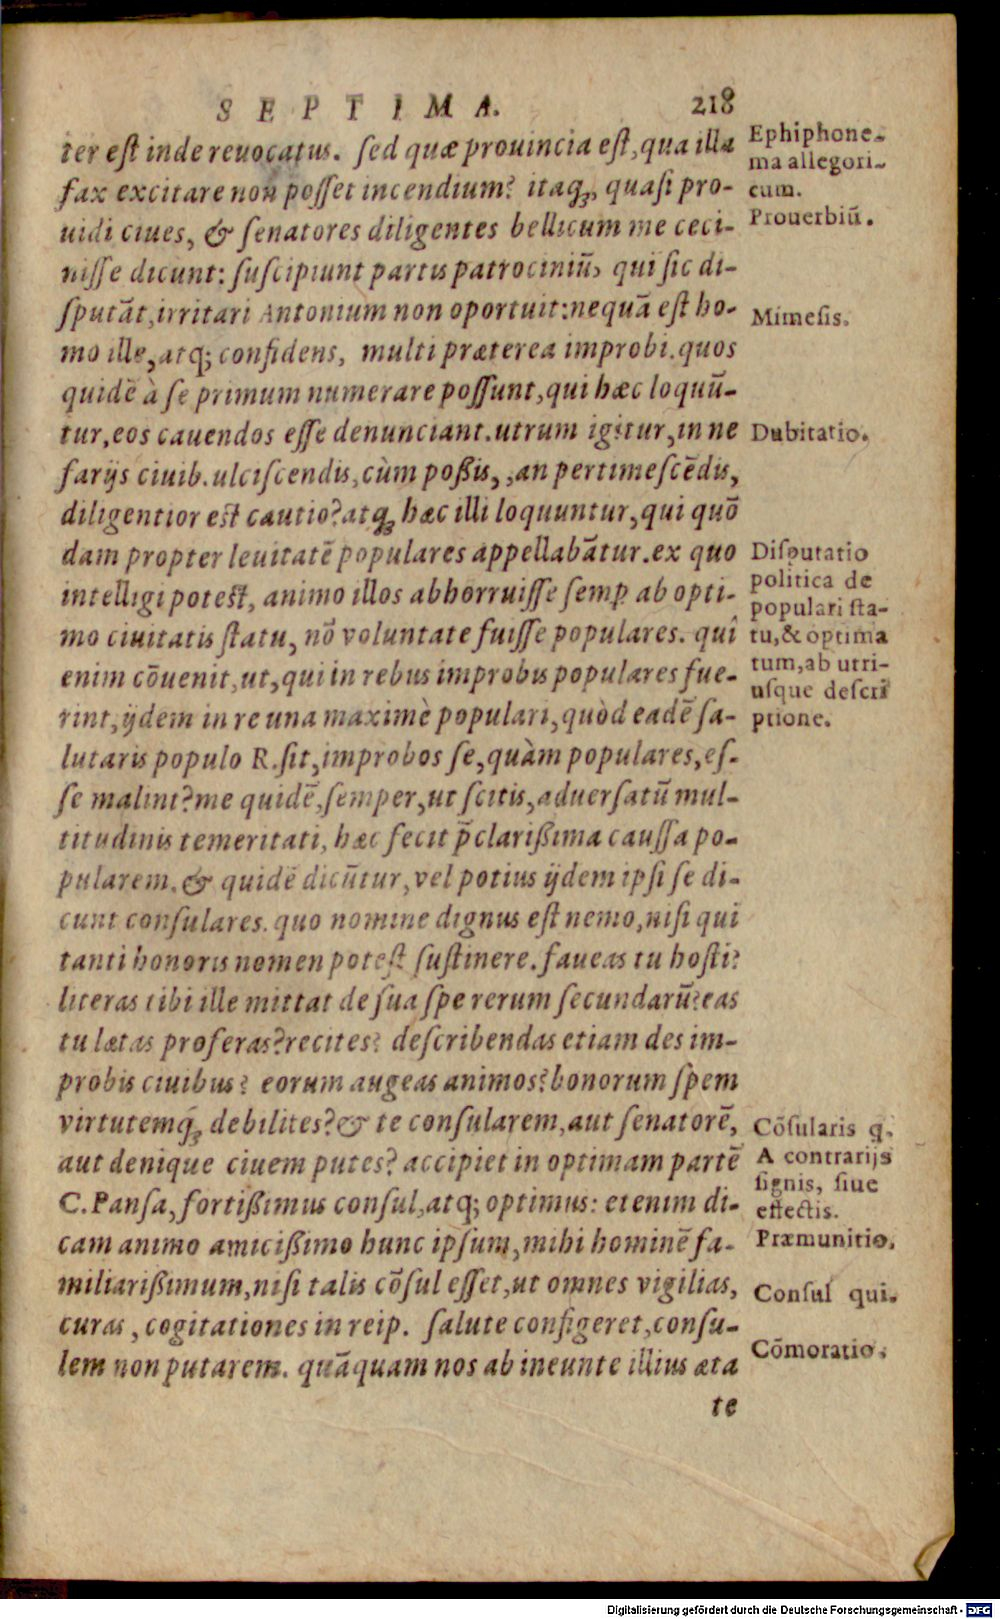 SEPTIMA. 218
ter eſt inde reuocatus. ſed quæ prouincia eſt, qua illa
fax excitare non poſſet incendium? itaq́;, quaſi pro-
uidi ciues, & ſenatores diligentes bellicum me ceci-
niſſe dicunt: ſuſcipiunt partis patrociniū, qui ſic di-
ſputāt, irritari Antonium non oportuit: nequā eſt ho-
mo ille, atq; confidens, multi præterea improbi. quos
quidē à ſe primum numerare poſſunt, qui hæc loquū-
tur, eos cauendos eſſe denunciant. utrum igitur, in ne
farijs ciuib. ulciſcendis, cùm poßis,, an pertimeſcēdis,
diligentior eſt cautio? atq́; hæc illi loquuntur, qui quō
dam propter leuitatē populares appellabātur. ex quo
intelligi poteſt, animo illos abhorruiſſe ſemp̱ ab opti-
mo ciuitatis ſtatu, nō voluntate fuiſſe populares. quî
enim cōuenit, ut, qui in rebus improbis populares fue-
rint, ijdem in re una maximè populari, quòd eadē ſa-
lutaris populo R. ſit, improbos ſe, quàm populares, eſ-
ſe malint? me quidē, ſemper, ut ſcitis, aduerſatū mul-
titudinis temeritati, hæc fecit p̄clarißima cauſſa po-
pularem. & quidē dicūtur, vel potius ijdem ipſi ſe di-
cunt conſulares. quo nomine dignus eſt nemo, niſi qui
tanti honoris nomen poteſt ſuſtinere. faueas tu hoſti?
literas tibi ille mittat de ſua ſpe rerum ſecundarū? eas
tu lætas proferas? recites? deſcribendas etiam des im-
probis ciuibus? eorum augeas animos? bonorum ſpem
virtutemq́; debilites? & te conſularem, aut ſenatorē,
aut denique ciuem putes? accipiet in optimam partē
C. Panſa, fortißimus conſul, atq; optimus: etenim di-
cam animo amicißimo hunc ipſum, mihi hominē fa-
miliarißimum, niſi talis cōſul eſſet, ut omnes vigilias,
curas, cogitationes in reip. ſalute configeret, conſu-
lem non putarem. quāquam nos ab ineunte illius æta
te
Ephiphone-
ma allegori-
cum.
Prouerbiū.
Mimeſis.
Dubitatio.
Diſputatio
politica de
populari ſta-
tu, & optima
tum, ab utri-
uſque deſcri
ptione.
Cōſularis q.
A contrarijs
ſignis, ſiue
effectis.
Præmunitio.
Conſul qui.
Cōmoratio.
Digitalisierung gefördert durch die Deutsche Forschungsgemeinschaft - DFG